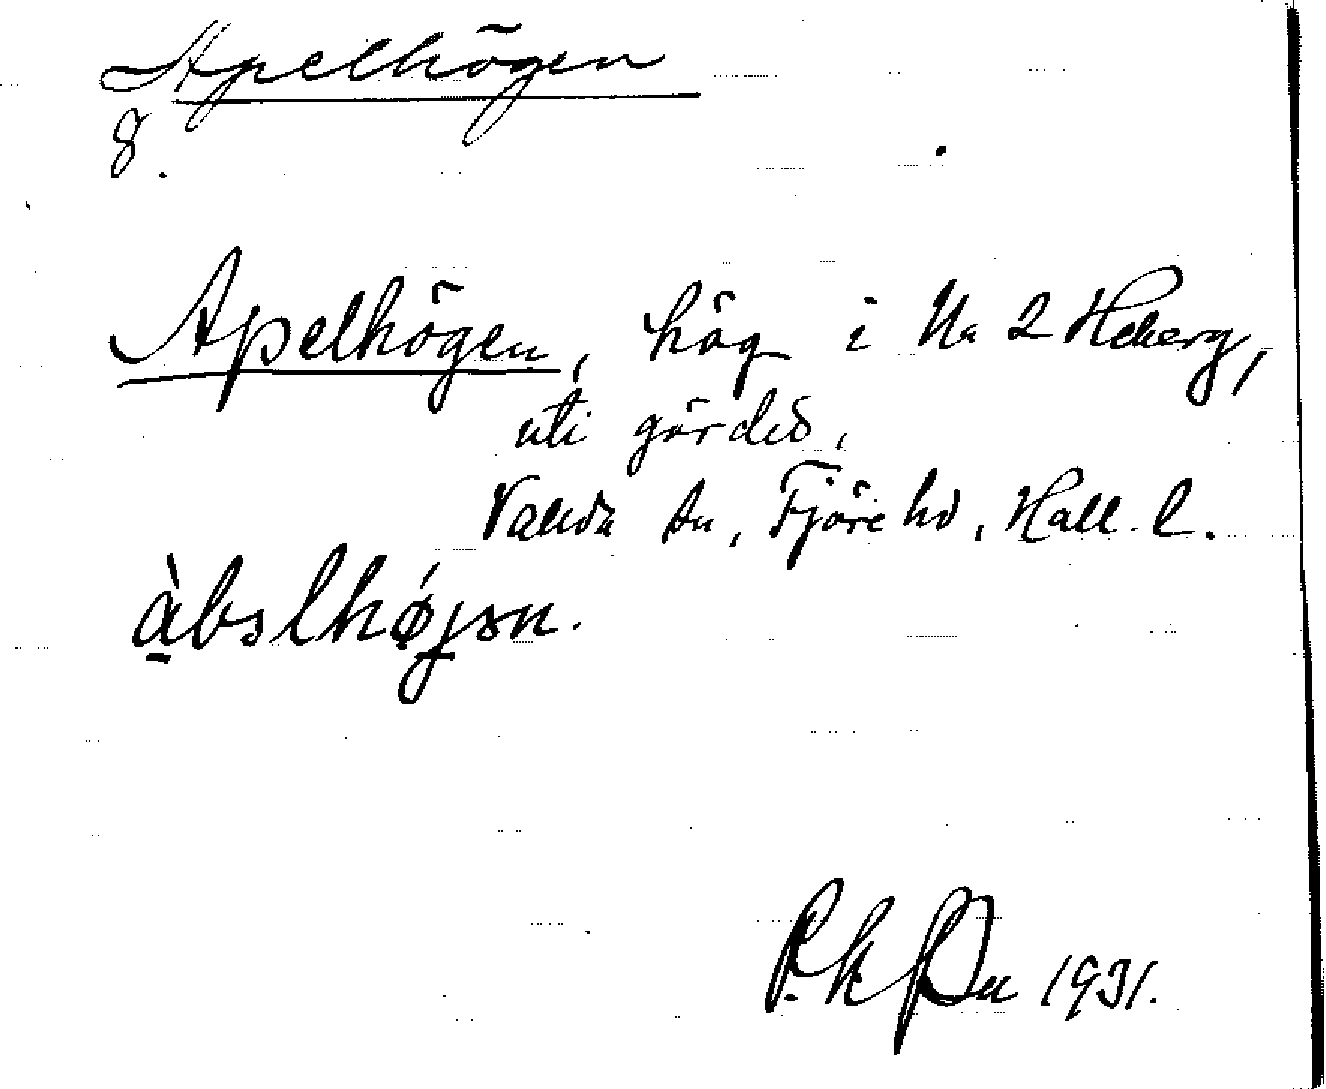 Apelhögen
8.
Apelhögen, hög i N:a 2 Heberg,
uti gärdet,
Valda sn, Fjäre hd, Hall. l.
àbəlhøjən.
P. 1931.